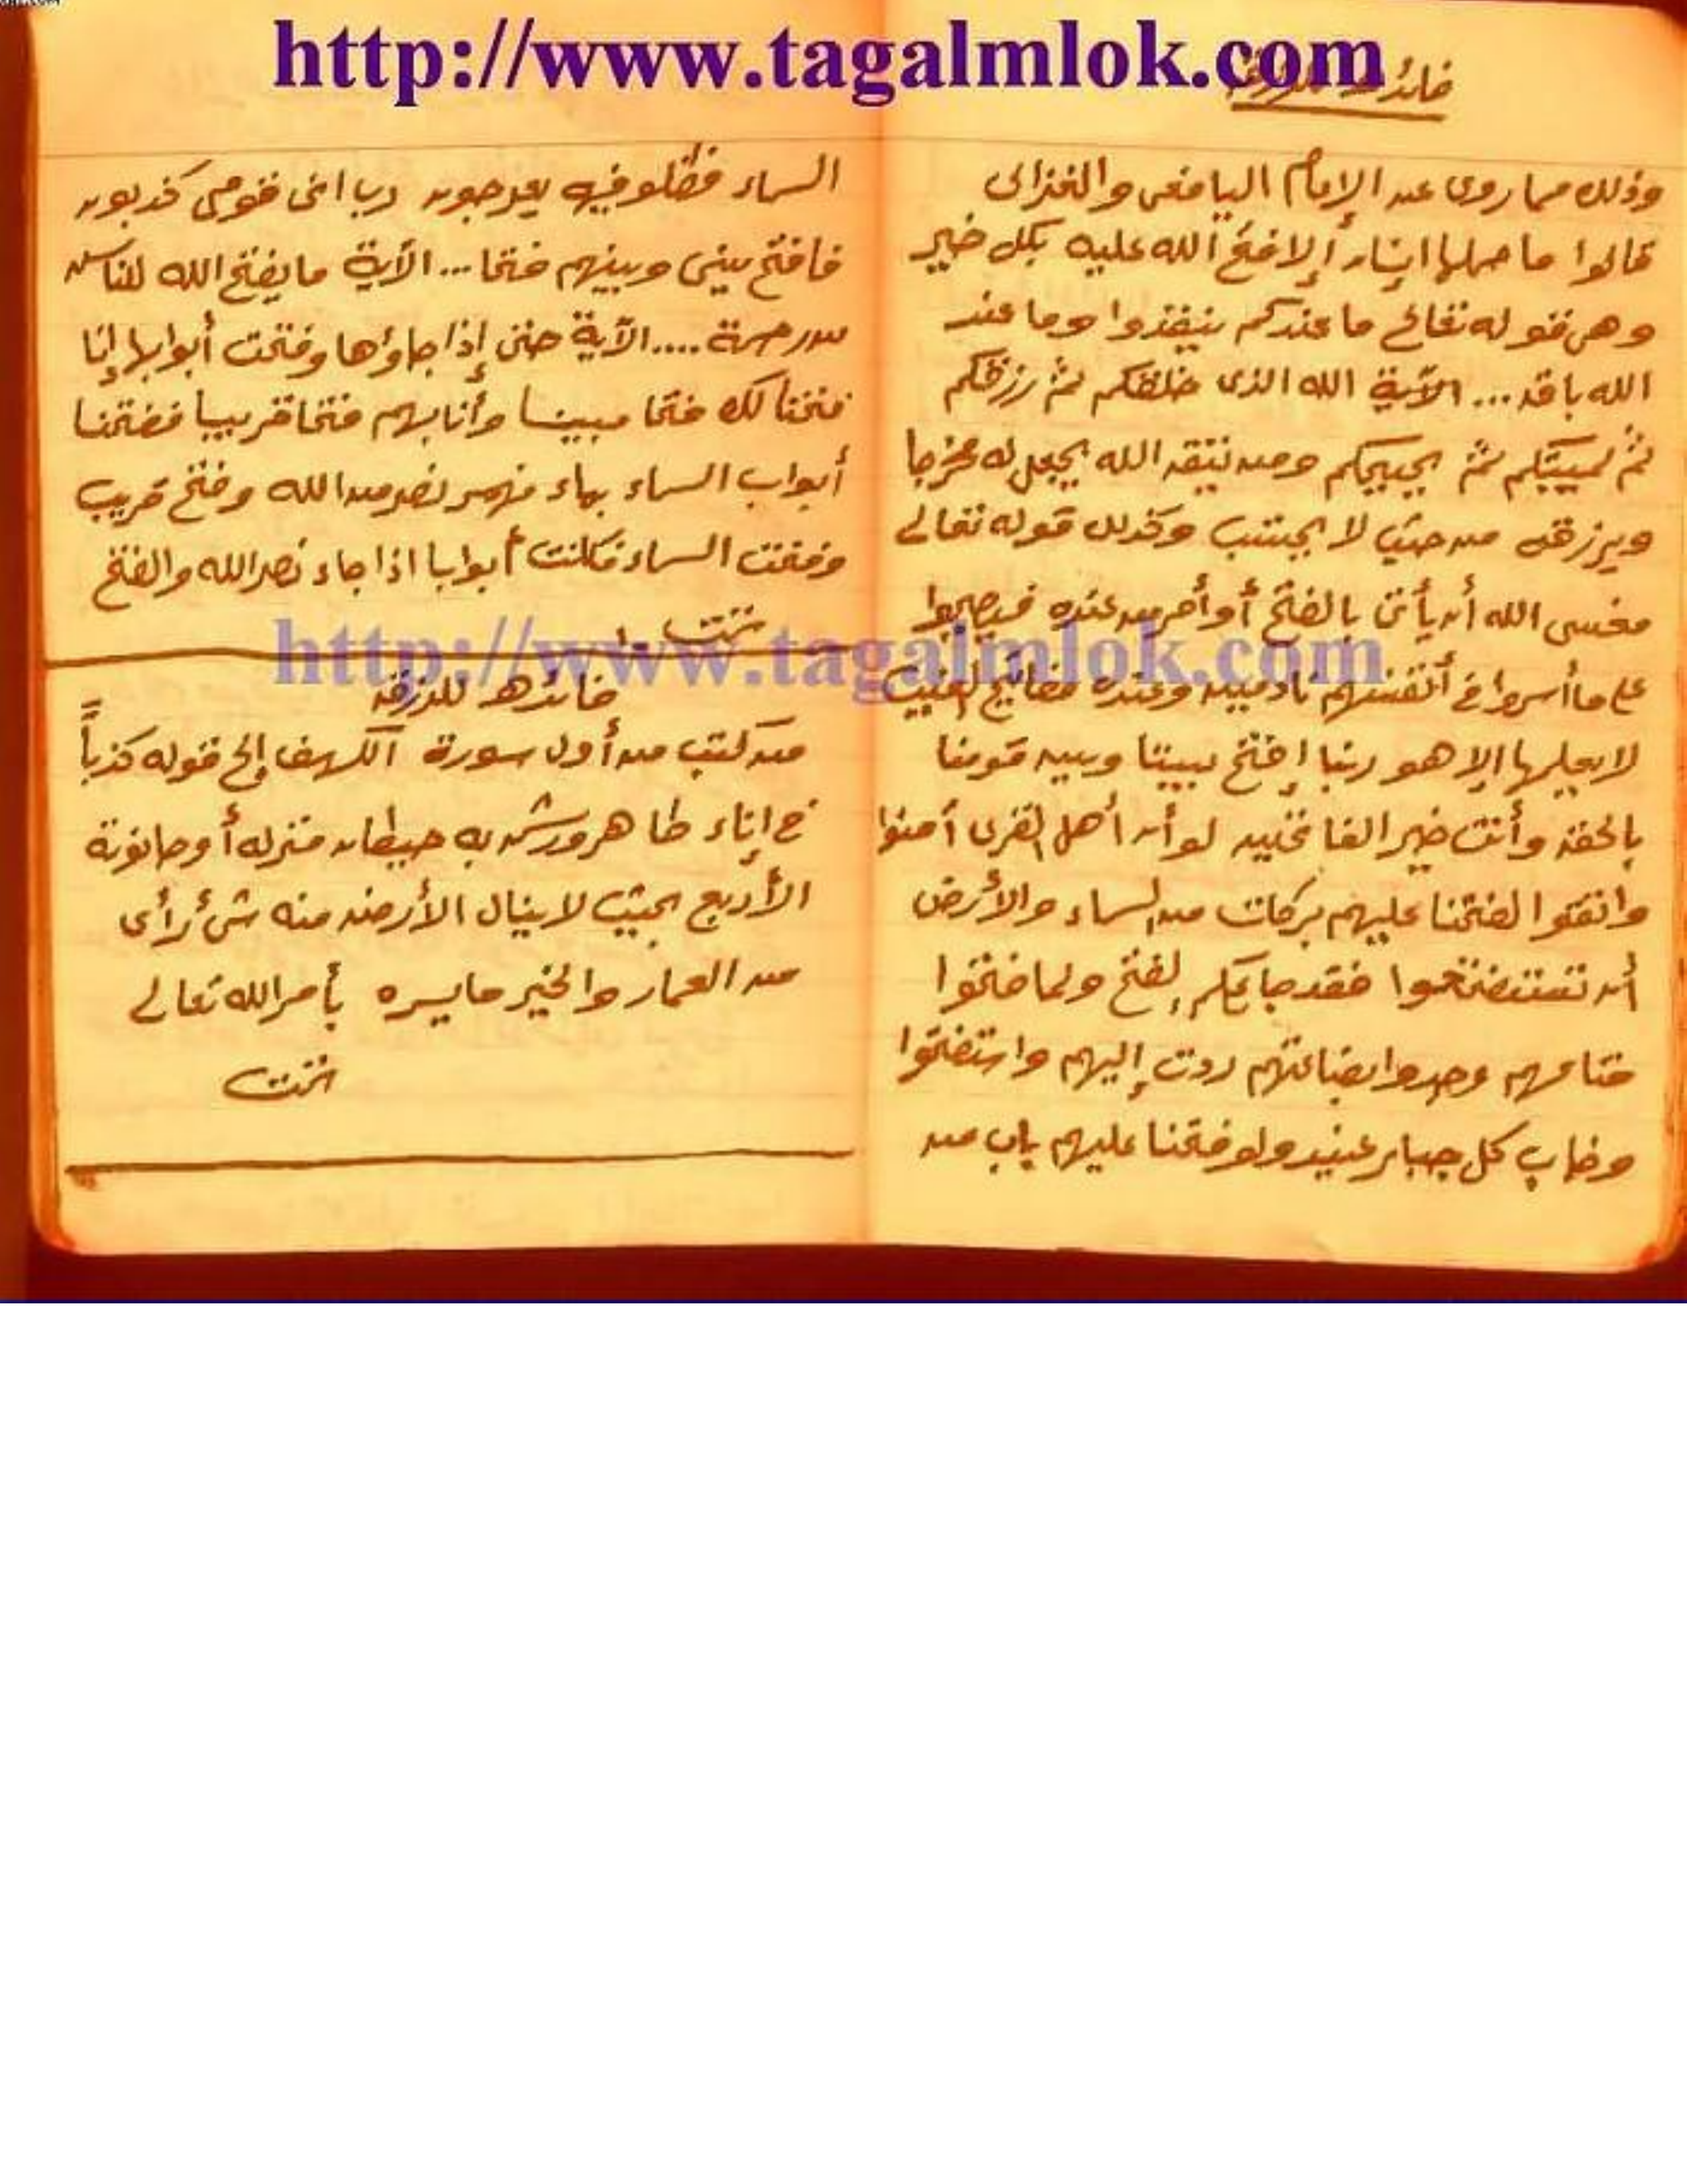 http://www.tagalmlok.com
فائدة للرزق
وذلك مما روى عن الإمام اليافعى والغزالى
قالوا ما حملها إنسان إلا فتح الله عليه بكل خير
وهى قوله تعالى ما عندكم ينفذوا وما عند
الله باق ... الآية الله الذى خلقكم ثم رزقكم
ثم يميتكم ثم يحييكم ومن يتق الله يجعل له مخرجا
ويرزقه من حيث لا يحتسب وكذلك قوله تعالى
فعسى الله أن يأتى بالفتح أو أمر من عنده فيصبحوا
على ما أسروا فى أنفسهم نادمين وعنده مفاتيح الغيب
لا يعلمها إلا هو ربنا إفتح بيننا وبين قومنا
بالحق وأنت خير الفاتحين لو أن أهل القرى آمنوا
واتقوا لفتحنا عليهم بركات من السماء والأرض
أن تستفتحوا فقد جاءكم الفتح ولما فتحوا
متاعهم وجدوا بضاعتهم ردت إليهم واستفتحوا
وخاب كل جبار عنيد ولو فتحنا عليهم باب من
السماء فظلوا فيه يعرجون رب انى قومى كذبون
فافتح بينى وبينهم فتحا ... الآية ما يفتح الله للناس
من رحمة .... الآية حتى إذا جاؤها وفتحت أبوابها إنا
فتحنا لك فتحا مبينا وأثابهم فتحا قريبا ففتحنا
أبواب السماء بماء منهمر نصر من الله وفتح قريب
وفتحت السماء فكانت أبوابا اذا جاء نصر الله والفتح
تمت
http://www.tagalmlok.com
فائدة للرزق
من كتب من أول سورة الكهف إلى قوله كذباً
فى إناء طاهر ورش به حيطان منزله أو حانوته
الأربع بحيث لا ينال الأرض منه شئ رأى
من العمار والخير ما يسره بأمر الله تعالى
تمت